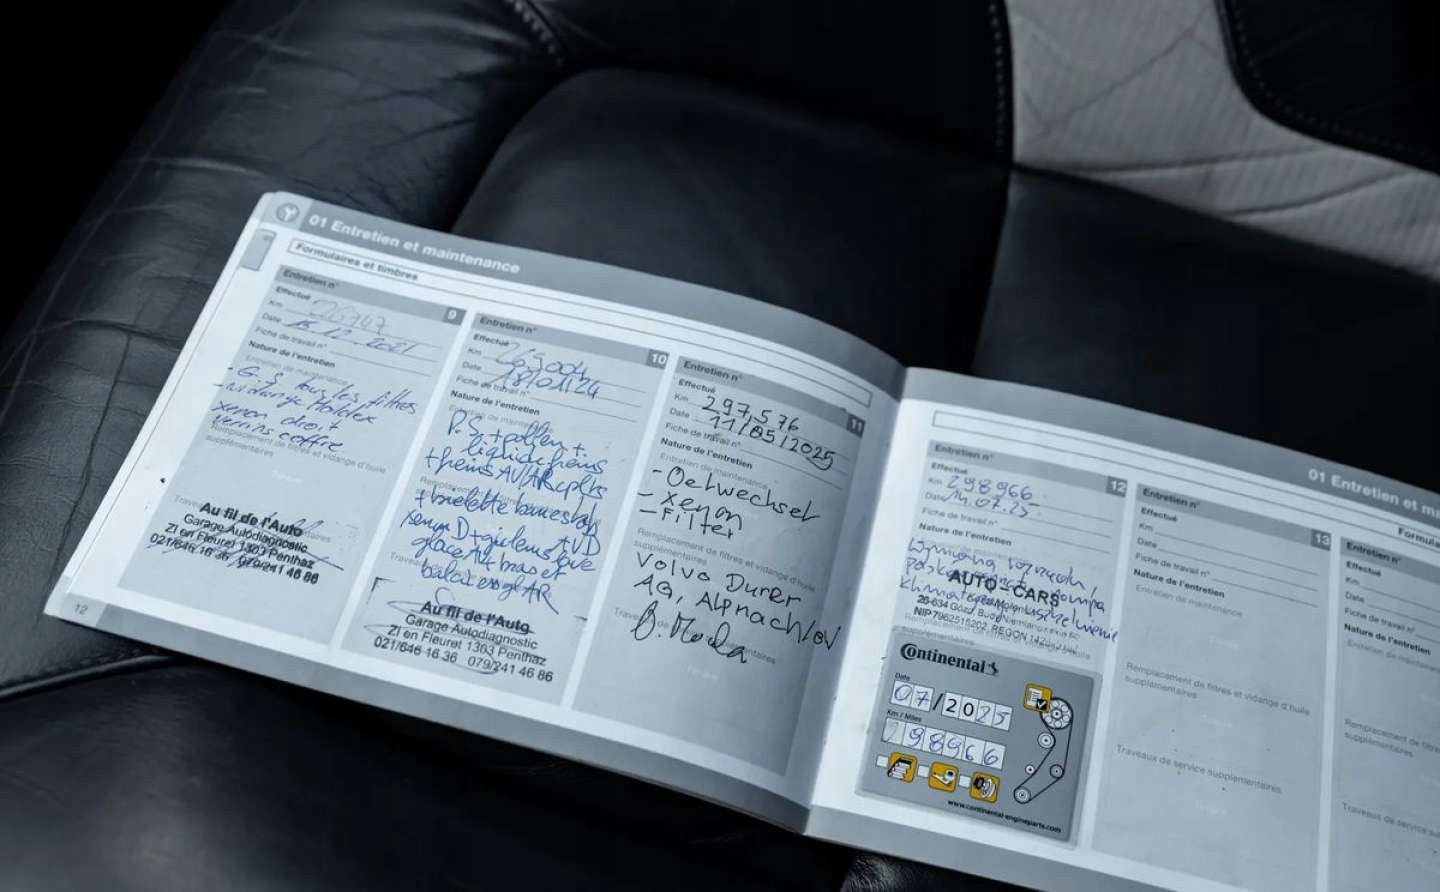 01 Entretien et maintenance
Formulaires et timbres
Entretien n° 9
Effectué
Km
Date 15.12.2021
Fiche de travail n°
Nature de l'entretien
Entretien de maintenance
tous les filtres
Haldex
xenon droit
verins coffre
Remplacement de filtres et vidange d'huile
supplémentaires
Au fil de l'Auto
Garage Autodiagnostic
ZI en Fleuret 1303 Penthaz
021/646 16 36 079/241 46 86
12
Entretien n° 10
Effectué
Km 269004
Date 18/01/24
Fiche de travail n°
Nature de l'entretien
P.S. + pollen +
liquide freins
+ freins AV/AR cplts
+ biellette barre stab
xenon D +
glace
balai essuie gl AR
Au fil de l'Auto
Garage Autodiagnostic
ZI en Fleuret 1303 Penthaz
021/646 16 36 079/241 46 86
Entretien n° 11
Effectué
Km 297,576
Date 11/05/2025
Fiche de travail n°
Nature de l'entretien
Entretien de maintenance
- Oelwechsel
- Xenon
- Filter
Remplacement de filtres et vidange d'huile
supplémentaires
Volvo Durer
AG, Alpnach/OW
Entretien n° 12
Effectué
Km 298966
Date 14.07.25
Fiche de travail n°
Nature de l'entretien
Wymiana rozrządu,
pompa
AUTO-CARS
26-634 Gózd
NIP 7962515202, REGON
Continental
Date
07/2025
Km / Miles
298966
www.continental-engineparts.com
01 Entretien et
Entretien n° 13
Effectué
Km
Date
Fiche de travail n°
Nature de l'entretien
Entretien de maintenance
Remplacement de filtres et vidange d'huile
supplémentaires
Travaux de service supplémentaires
Entretien n°
Effectué
Km
Date
Fiche de travail n°
Nature de l'entretien